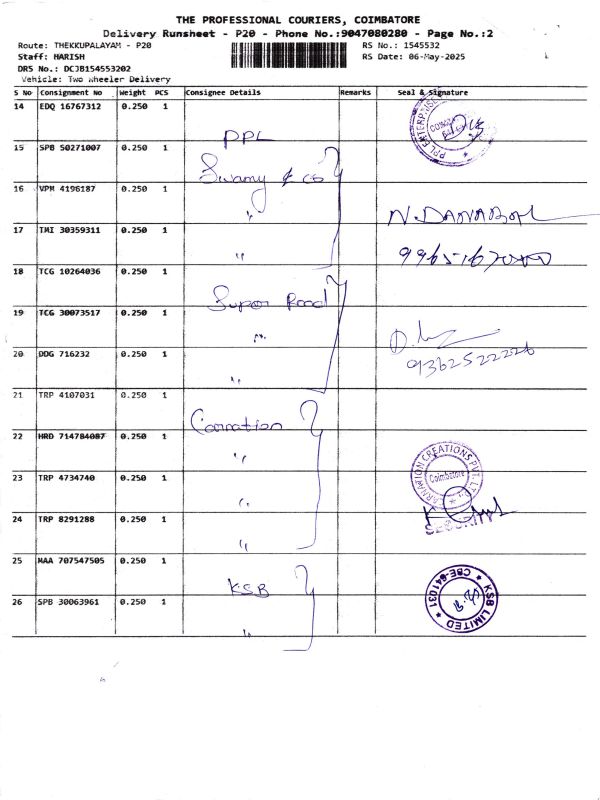 THE PROFESSIONAL COURIERS, COIMBATORE
Delivery Runsheet - P20 - Phone No.:9047080280 - Page No.:2
Route: THEKKUPALAYAM - P20 RS No.: 1545532
Staff: HARISH RS Date: 06-May-2025
DRS No.: DCJB154553202
Vehicle: Two Wheeler Delivery
S No Consignment No Weight PCS Consignee Details Remarks Seal & Signature
14 EDQ 16767312 0.250 1 PPL
15 SPB 50271007 0.250 1 Swamy & co
16 VPM 4196187 0.250 1 "
N. DANABAL
17 TMI 30359311 0.250 1 "
18 TCG 10264036 0.250 1 Super Road
19 TCG 30073517 0.250 1 "
20 DDG 716232 0.250 1 "
9362522226
21 TRP 4107031 0.250 1 Carnation
22 HRD 714784087 0.250 1 "
23 TRP 4734740 0.250 1 "
CARNATION CREATIONS PVT. LTD
Coimbatore
24 TRP 8291288 0.250 1 "
25 MAA 707547505 0.250 1 KSB
26 SPB 30063961 0.250 1 "
KSB LIMITED * CBE-641031 *